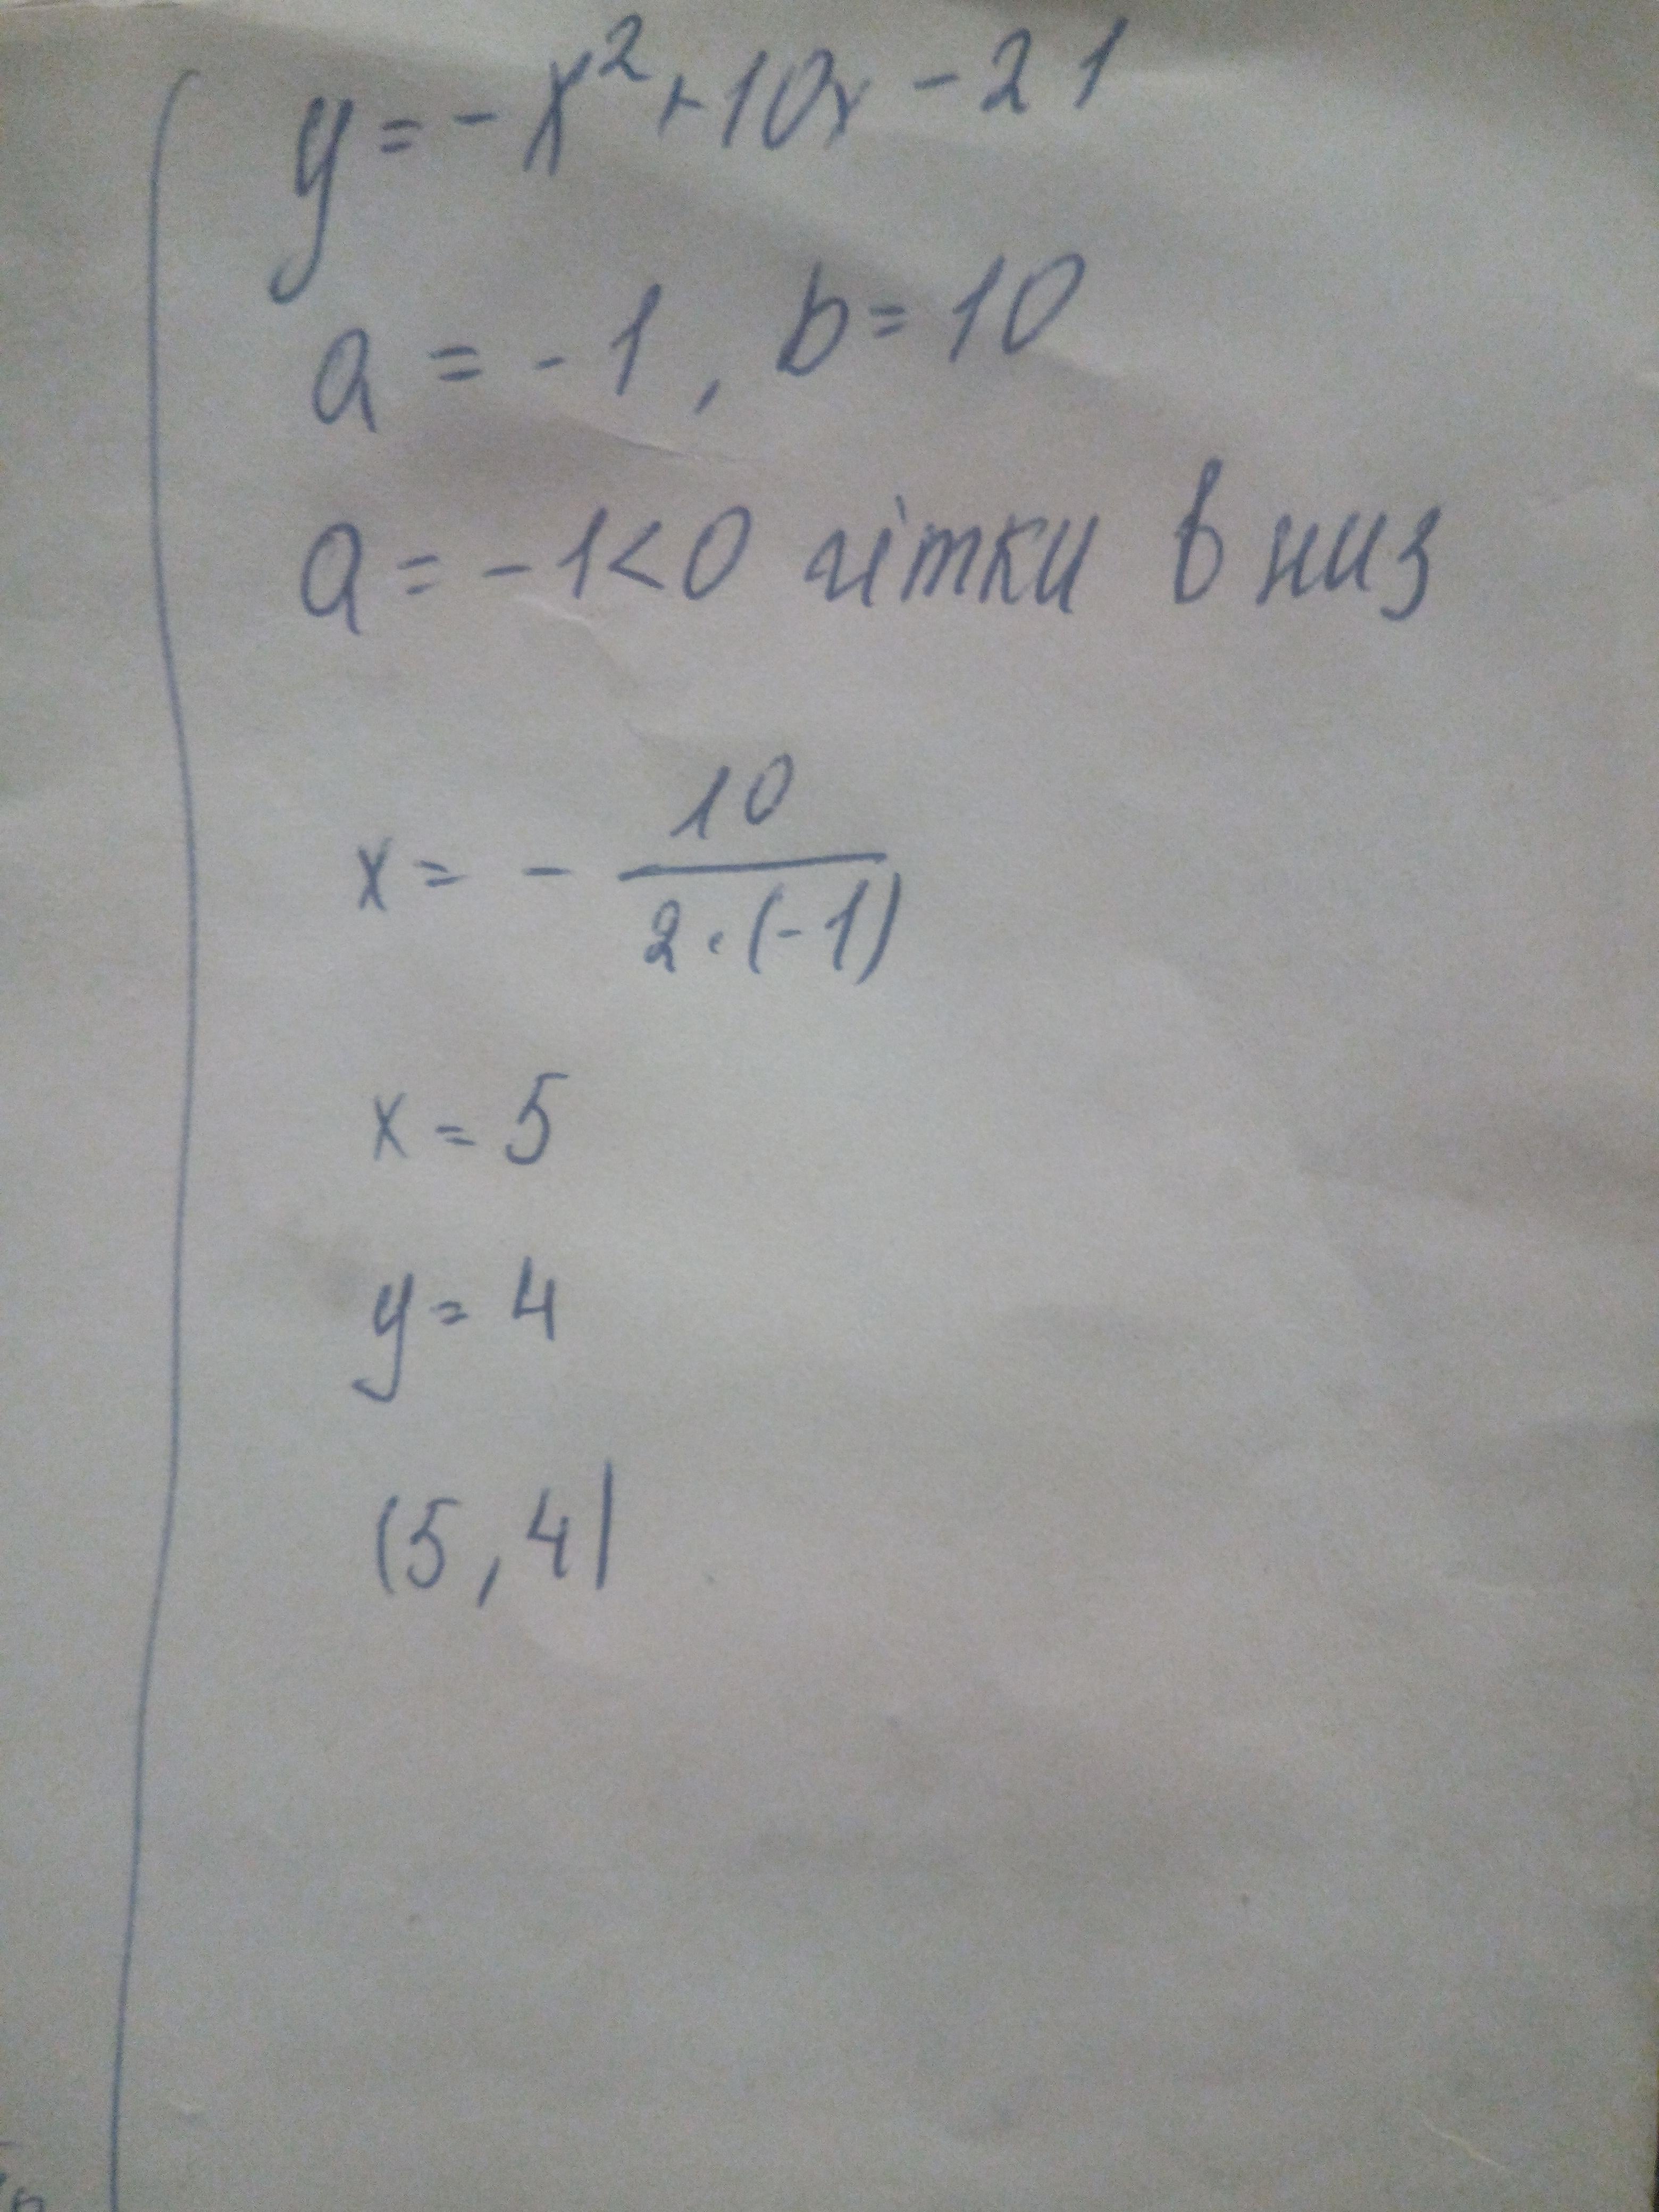 y = - x² + 10x - 21
a = - 1, b = 10
a = - 1 < 0 вітки в низ
x = - 10 / 2 · (-1)
x = 5
y = 4
(5, 4)